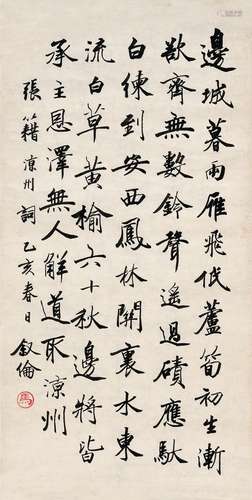 邊城暮雨雁飛低蘆筍初生漸
欲齊無數鈴聲遙過磧應馱
白練到安西鳳林關裏水東
流白草黃榆六十秋邊將皆
承主恩澤無人解道取涼州
張籍涼州詞乙亥春日叙倫
馬